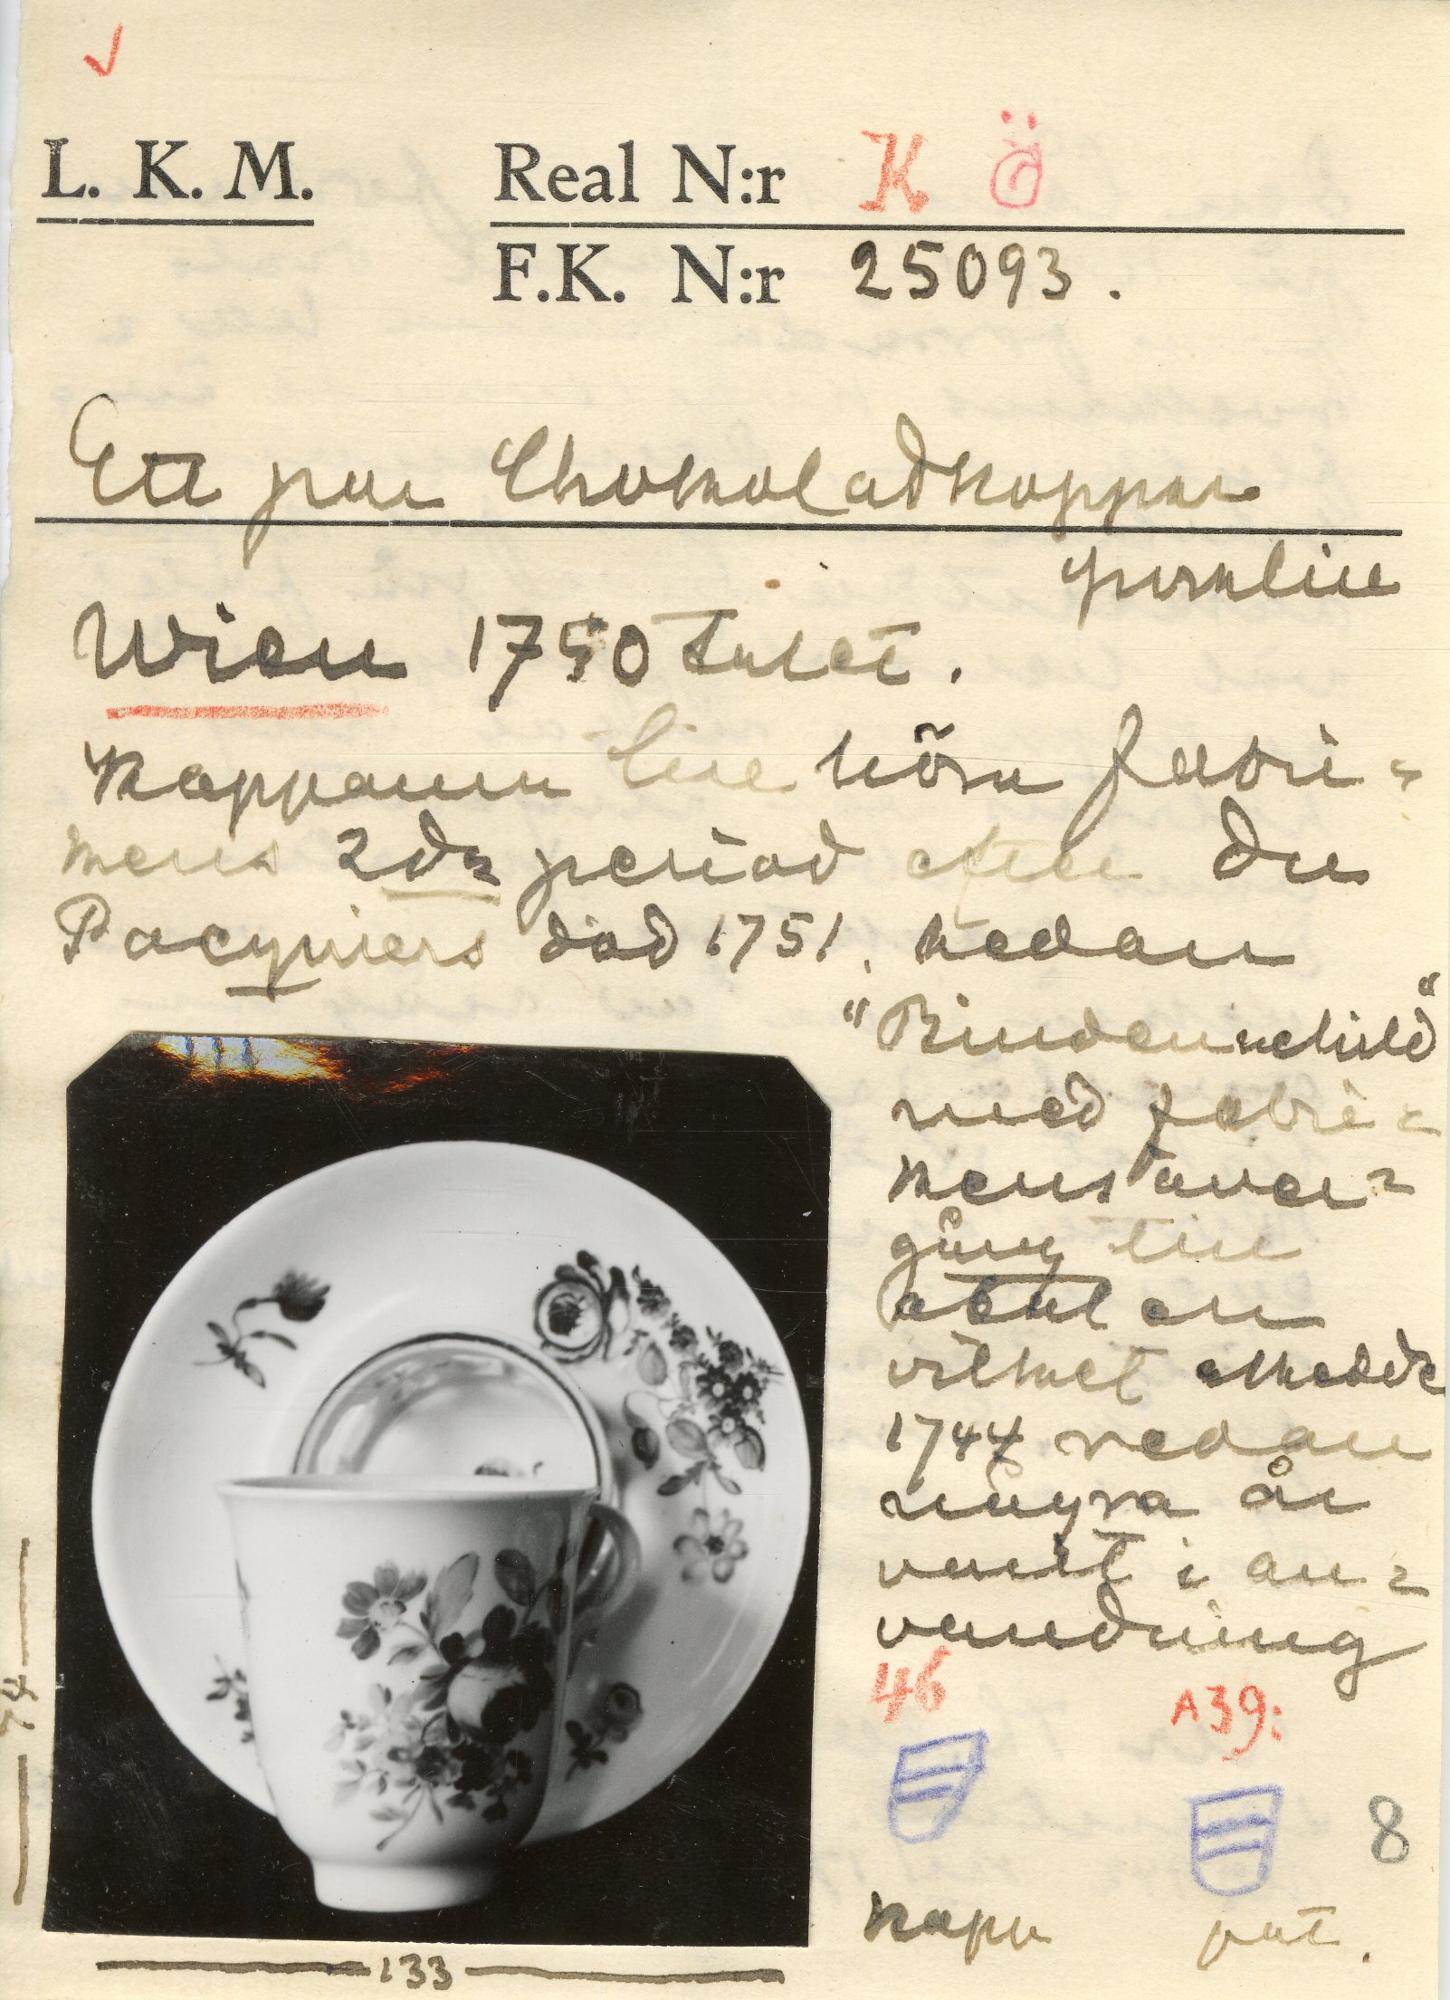 L. K. M. Real N:r K Ö
F.K. N:r 25093.
Ett par Chokoladkoppar
porslin
Wien 1750 talet.
Kopparna höra fabri-
kens 2dra period efter Du
Pacquiers död 1751. sedan
"Bindenschild"
med fabri-
kens över-
gång till
staten
vilket skedde
1744 redan
några år
varit i an-
vändning
46 A39:
8
kopp fat.
74
133